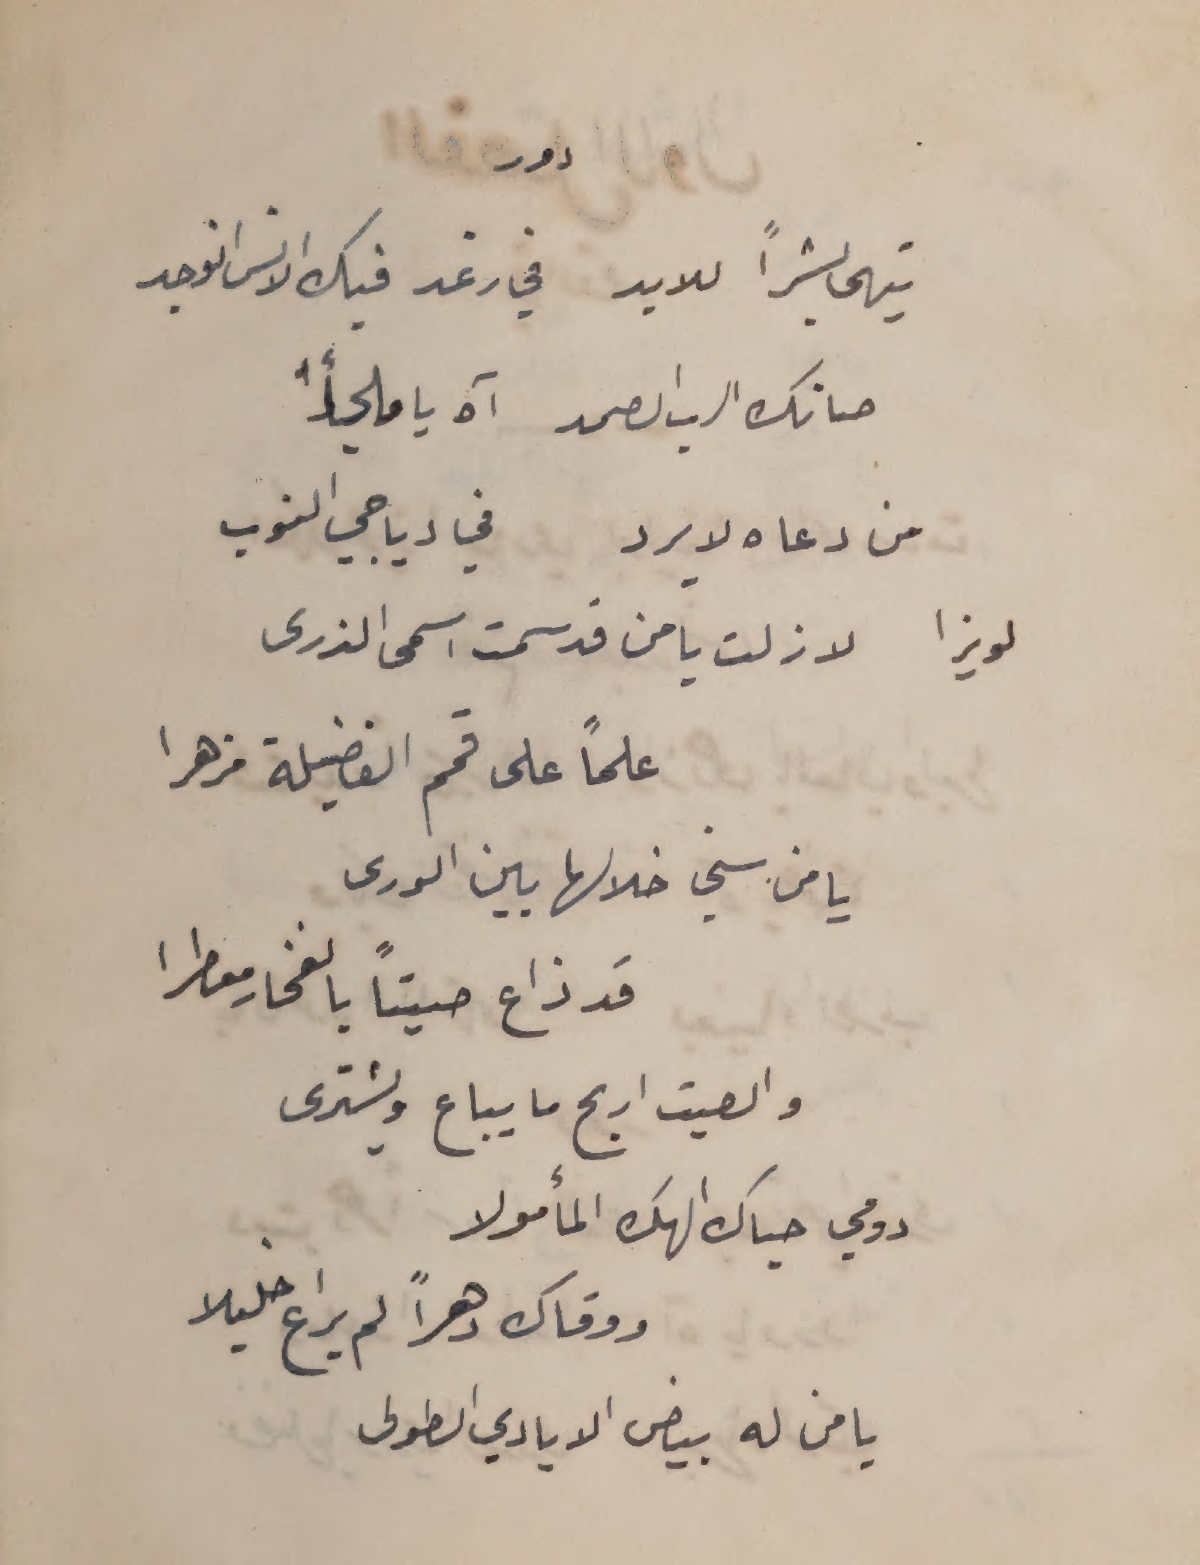 دور
تيهي بشراً للابد في رغد فيك الانس انوجد
صانك الرب الصمد آه يا ملجأ
من دعاه لا يرد في دياجي النوب
لويزا لا زلت يا من قد سمت اسمى الذرى
علماً على قمم الفضيلة مزهرا
يا من سني خلالها بين الورى
قد ذاع صيتاً بالفخار معطرا
والصيت اربح ما يباع ويشترى
دومي حباك الهك المأمولا
ووقاك دهراً لم يراع خليلا
يا من له بيض الايادي الطولى